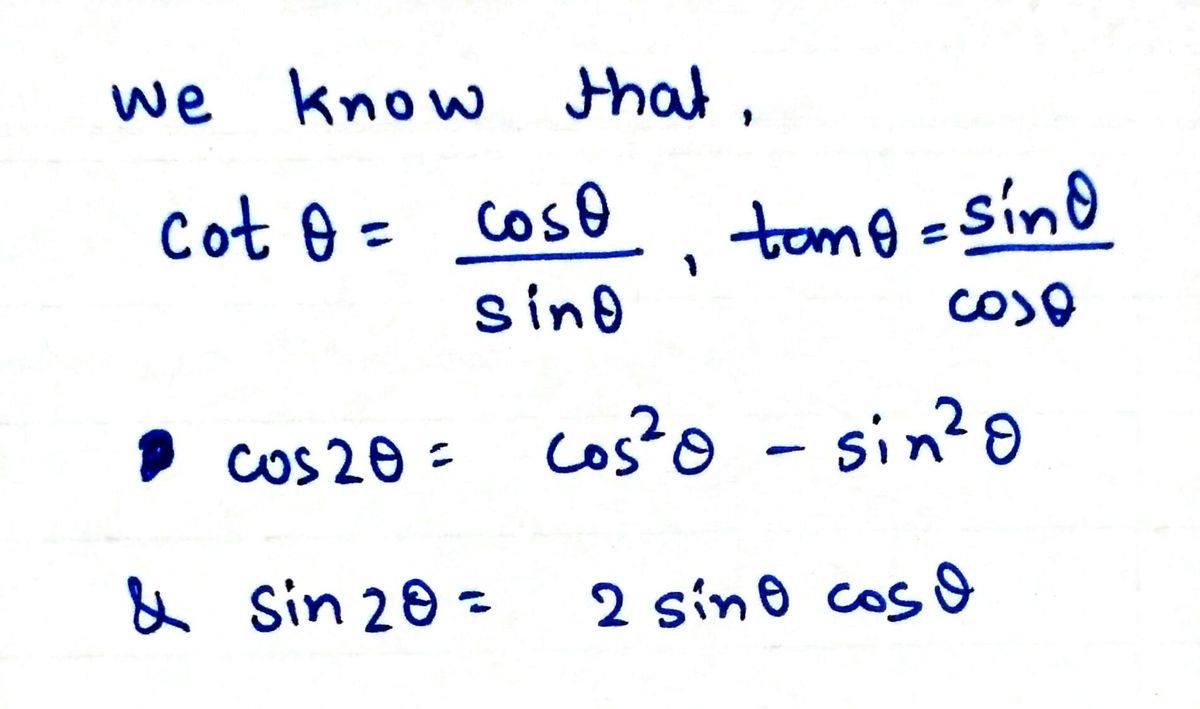 We know that,
cot θ = cosθ / sinθ , tanθ = sinθ / cosθ
cos2θ = cos²θ - sin²θ
& sin2θ = 2 sinθ cosθ